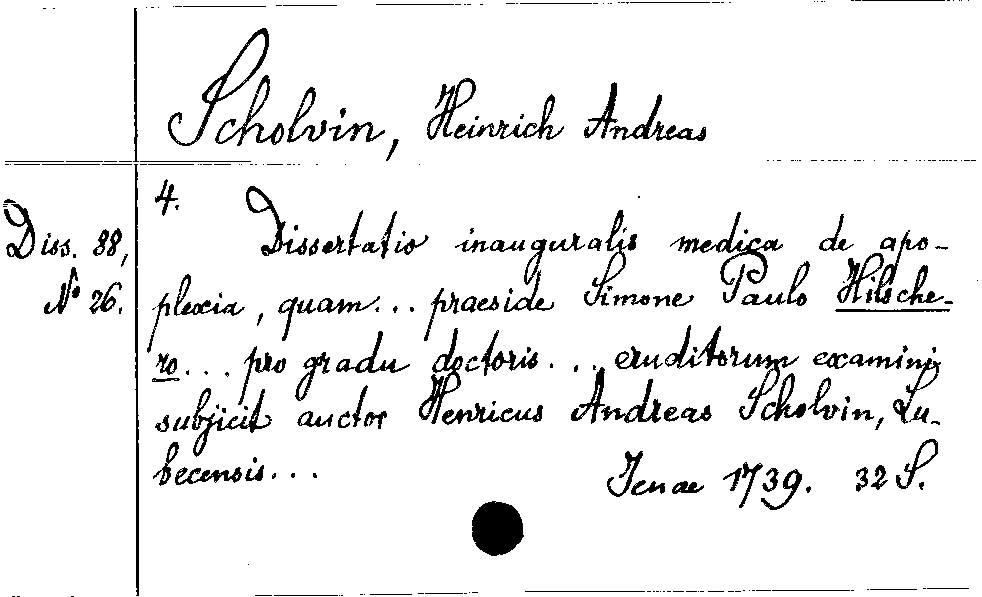 Scholvin, Heinrich Andreas
4.
Diss. 88,
No 26.
Dissertatio inauguralis medica de apo-
plexia, quam... praeside Simone Paulo Hilsche-
ro... pro gradu doctoris... eruditorum examini
subjicit auctor Henricus Andreas Scholvin, Lu-
becensis...
Jenae 1739. 32 S.